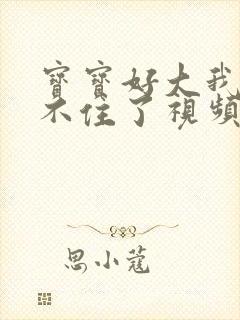 寶寶好大我
不住了視頻
思小蔻